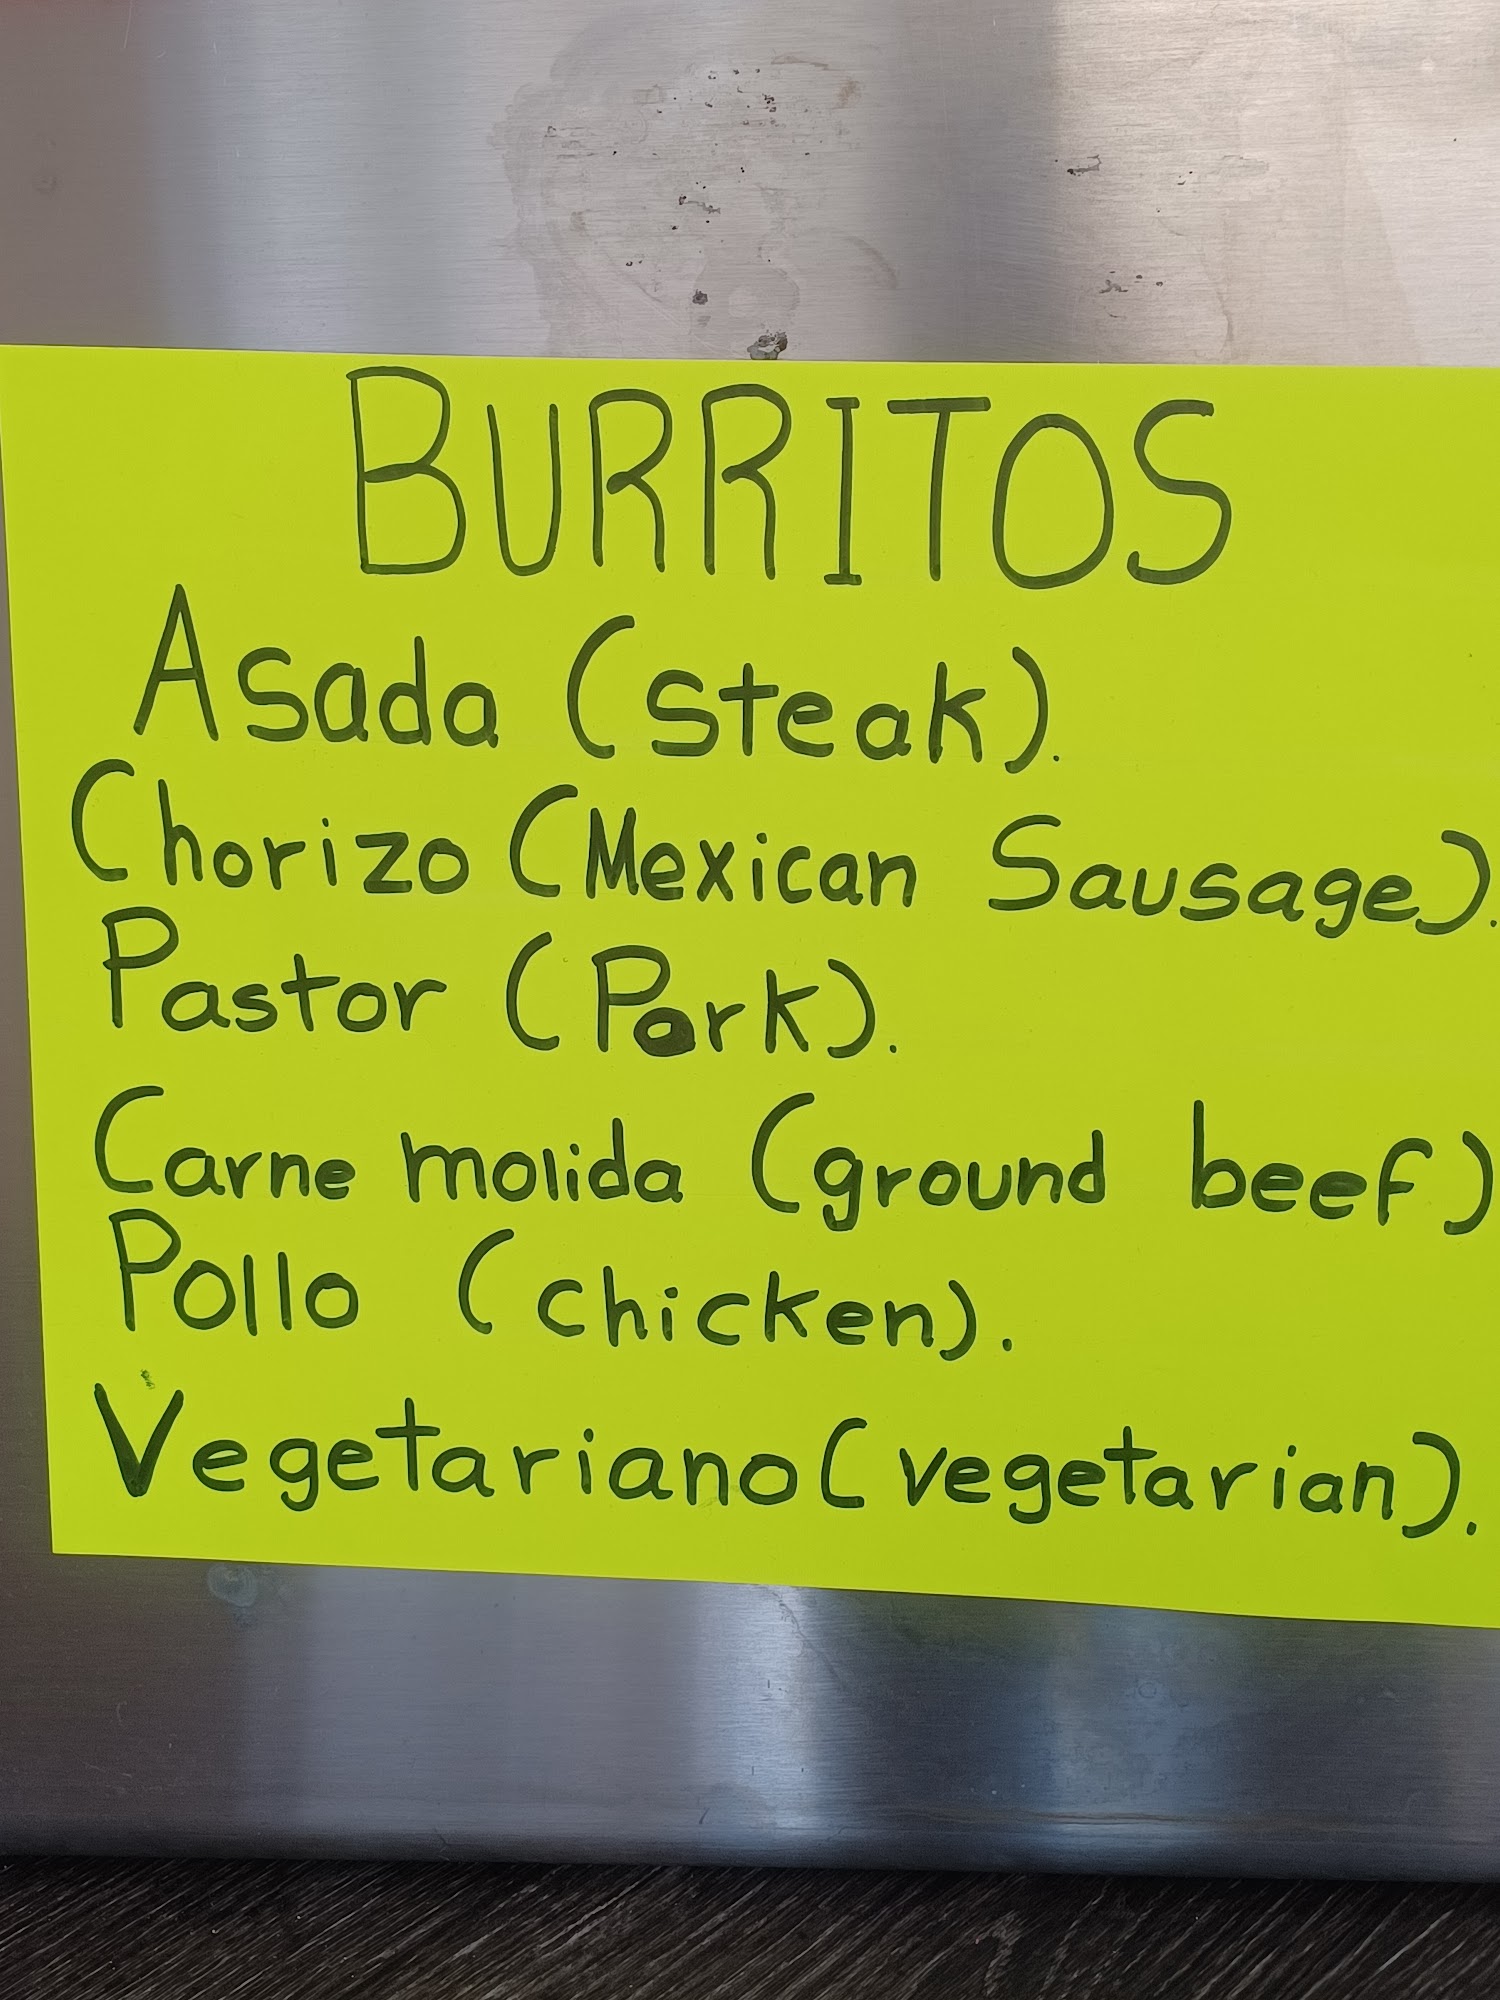 BURRITOS
Asada (steak).
Chorizo (Mexican Sausage).
Pastor (Pork).
Carne molida (ground beef)
Pollo (chicken).
Vegetariano (vegetarian).